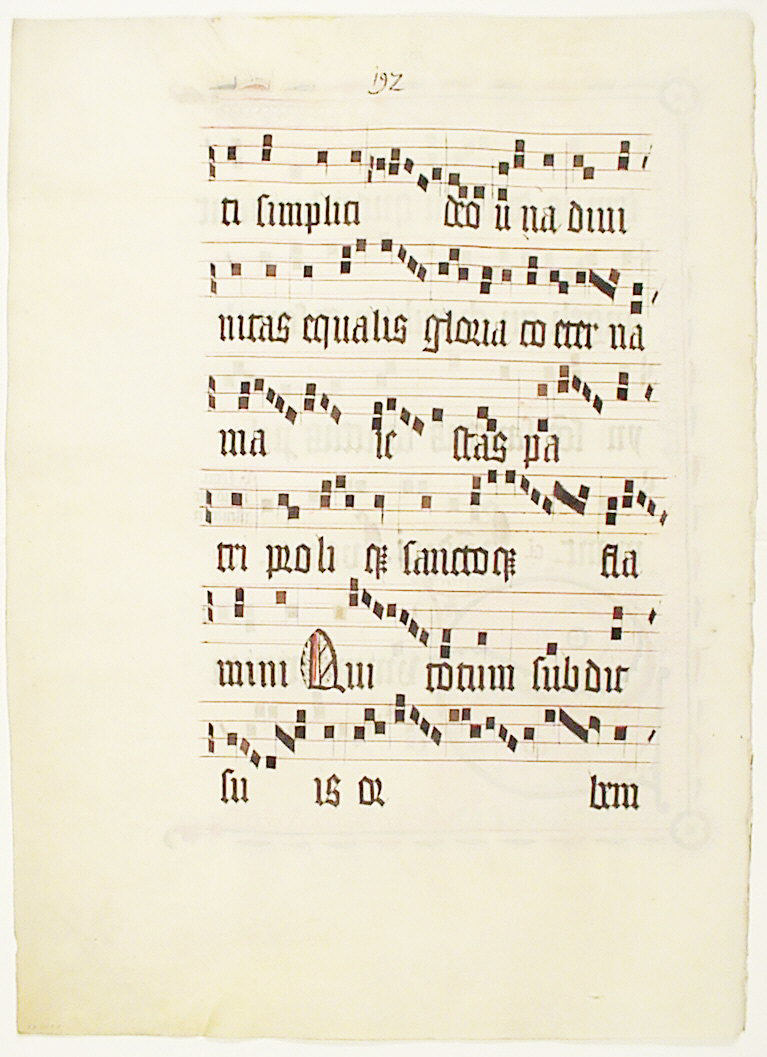 192
ti simplici deo u na divi
nitas equalis gloria co eter na
ma ie stas pa
tri pro li qꝫ sanctoqꝫ fla
mini Qui totum subdit
su is or bem